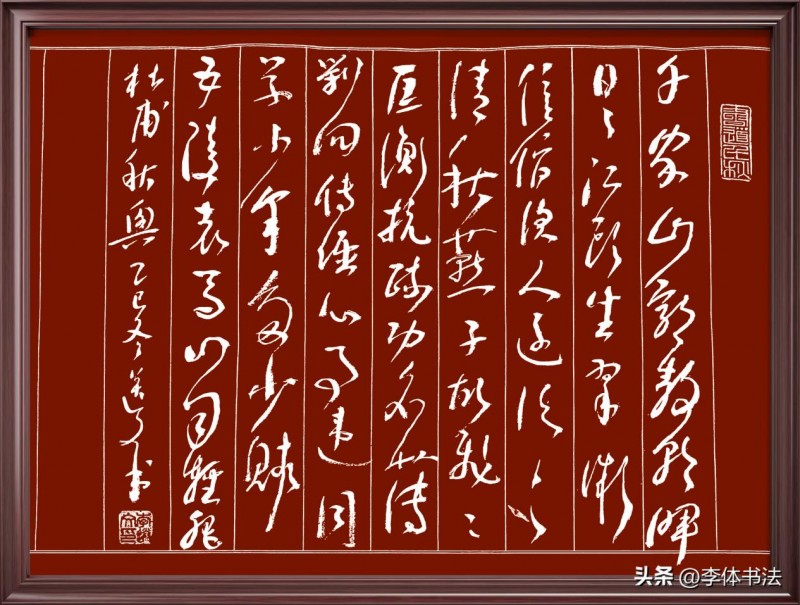 千家山郭静朝晖
日日江楼坐翠微
信宿漁人还泛泛
清秋燕子故飛飛
匡衡抗疏功名薄
劉向傳經心事違同
学少年多少賤
五陵衣马自輕肥
杜甫秋興乙巳冬书
头条 @李体书法